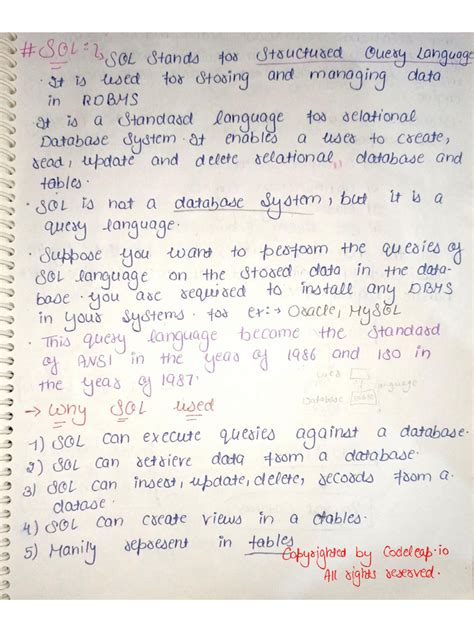 # SQL :- SQL Stands for Structured Query Language
· It is used for Storing and managing data
in RDBMS
It is a Standard language for relational
Database System. It enables a user to create,
read, update and delete relational database and
tables.
· SQL is not a database System, but it is a
query language.
· Suppose you want to perform the queries of
SQL language on the stored data in the data-
base. you are required to install any DBMS
in your systems. for ex:→ Oracle, MySQL
· This query language become the Standard
of ANSI in the year of 1986 and ISO in
the year of 1987.
→ Why SQL used
1) SQL can execute queries against a database.
2) SQL can retrieve data from a database.
3) SQL can insert, update, delete, records from a
datase.
4) SQL can create views in a tables.
5) Manily represent in tables
Copyrighted by Codeleap.io
All rights reserved.